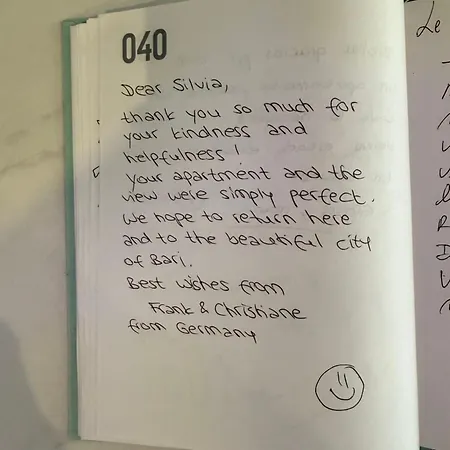 040
Dear Silvia,
thank you so much for
your kindness and
helpfulness!
Your apartment and the
view were simply perfect.
We hope to return here
and to the beautiful city
of Bari.
Best wishes from
Frank & Christiane
from Germany